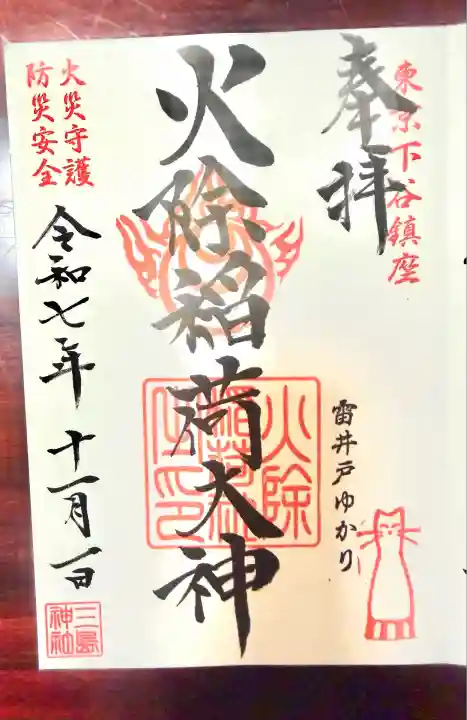 東京下谷鎮座
奉拝
雷井戸ゆかり
火除稲荷大神
火除
稲荷社
火災守護
防災安全
令和七年十一月一日
三島
神社